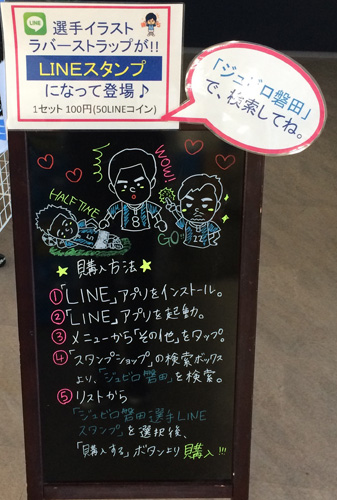 LINE
選手イラスト
ラバーストラップが!!
LINEスタンプ
になって登場♪
1セット 100円(50LINEコイン)
「ジュビロ磐田」
で、検索してね。
WOW!
HALF TIME
8
5
22
GO!
★購入方法★
①「LINE」アプリをインストール。
②「LINE」アプリを起動。
③メニューから「その他」をタップ。
④「スタンプショップ」の検索ボックス
より、「ジュビロ磐田」を検索。
⑤リストから
「ジュビロ磐田選手LINE
スタンプ」を選択後、
「購入する」ボタンより購入!!!